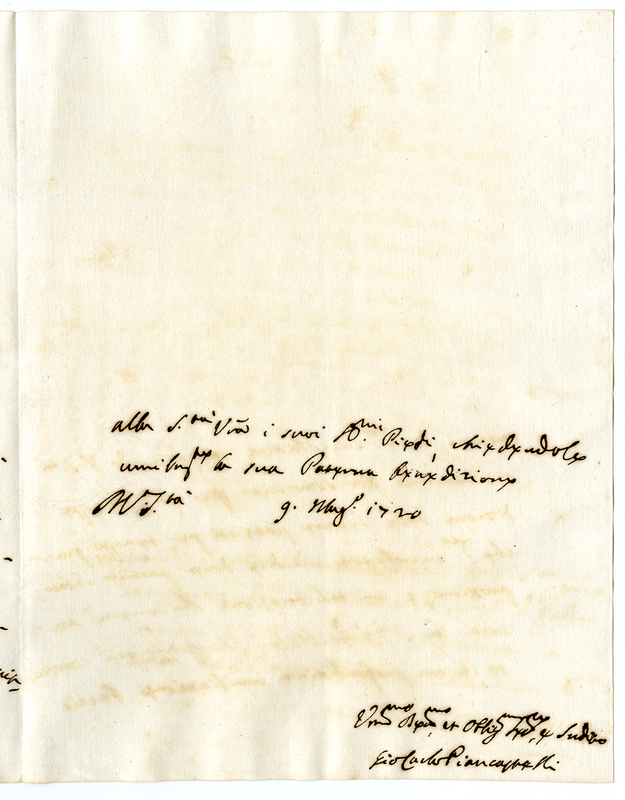 alla S.tà V̄ra i suoi S.mi Piedi, chiedendole
umilm.te la sua Paterna Benedizione
9. Mag.o 1720
Um̄mo Dev̄mo, et Obbliḡmo e Suddito
Gio Carlo Piancastelli